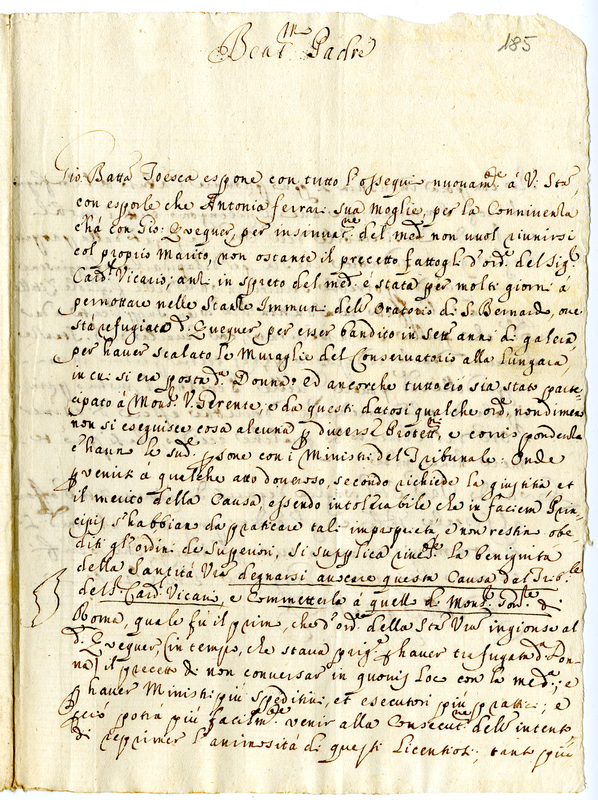 185
Beat.mo Padre
Gio: Batta Toesca espone con tutto l'ossequi nuovam.te á V. Stà,
con esporle che Antonia ferrari sua moglie, per la Conniventa
c'há con Gio: Quequer, per insinuat.ne del med.o non vuol riunirsi
col proprio Marito, non ostante il precetto fattogli d'ord.e del Sig.r
Card.l Vicario; anzi in spreto del med.o é stata per molti giorni a
pernottare nelle Stanze Immuni dell'Oratorio di S. Bernardo, oue
stà refugiato d.o Quequer per esser bandito in sett'anni di galera
per hauer scalato le Muraglie del Conservatorio alla lungara,
in cui si era posta d.a Donna: Ed ancorche tutto ció sia stato parte-
cipato á Mons.r V. Gerente, e da questi datosi qualche ord.e nondimeno
non si eseguisce cosa alcuna p diverse Protett.ni, e corrispondenza
c'hanno le sud.e psone con i Ministri del Tribunale. Onde
p venire á qualche atto doueroso, secondo richiede la giustitia et
il merito della Causa, essendo intolerabile che in faciem Prin-
cipis s'habbiano da praticare tali improprietà, e non restino obe-
diti gl'ordini de Superiori, si supplica riuer.te la benignità
della Santitá Vra degnarsi auocare questa Causa dal Trib.le
del S.r Card.l Vicario, e Commetterla á quello di Mons.r Gou.re di
Roma, quale fú il primo, che d'ord.e della Stà Vra ingionse al
d.o Quequer (in tempo, che staua prig.e p hauer trafugata d.a Don-
na) il precetto di non conversar in quouis loco con la med.a; e
p hauer Ministri più speditiui, et esecutori piú prattici; e
p ció potrà piú facilm.te venir alla Consecut.ne dell'intento
di reprimer l'animosità di questi Licentiosi, tanto piú